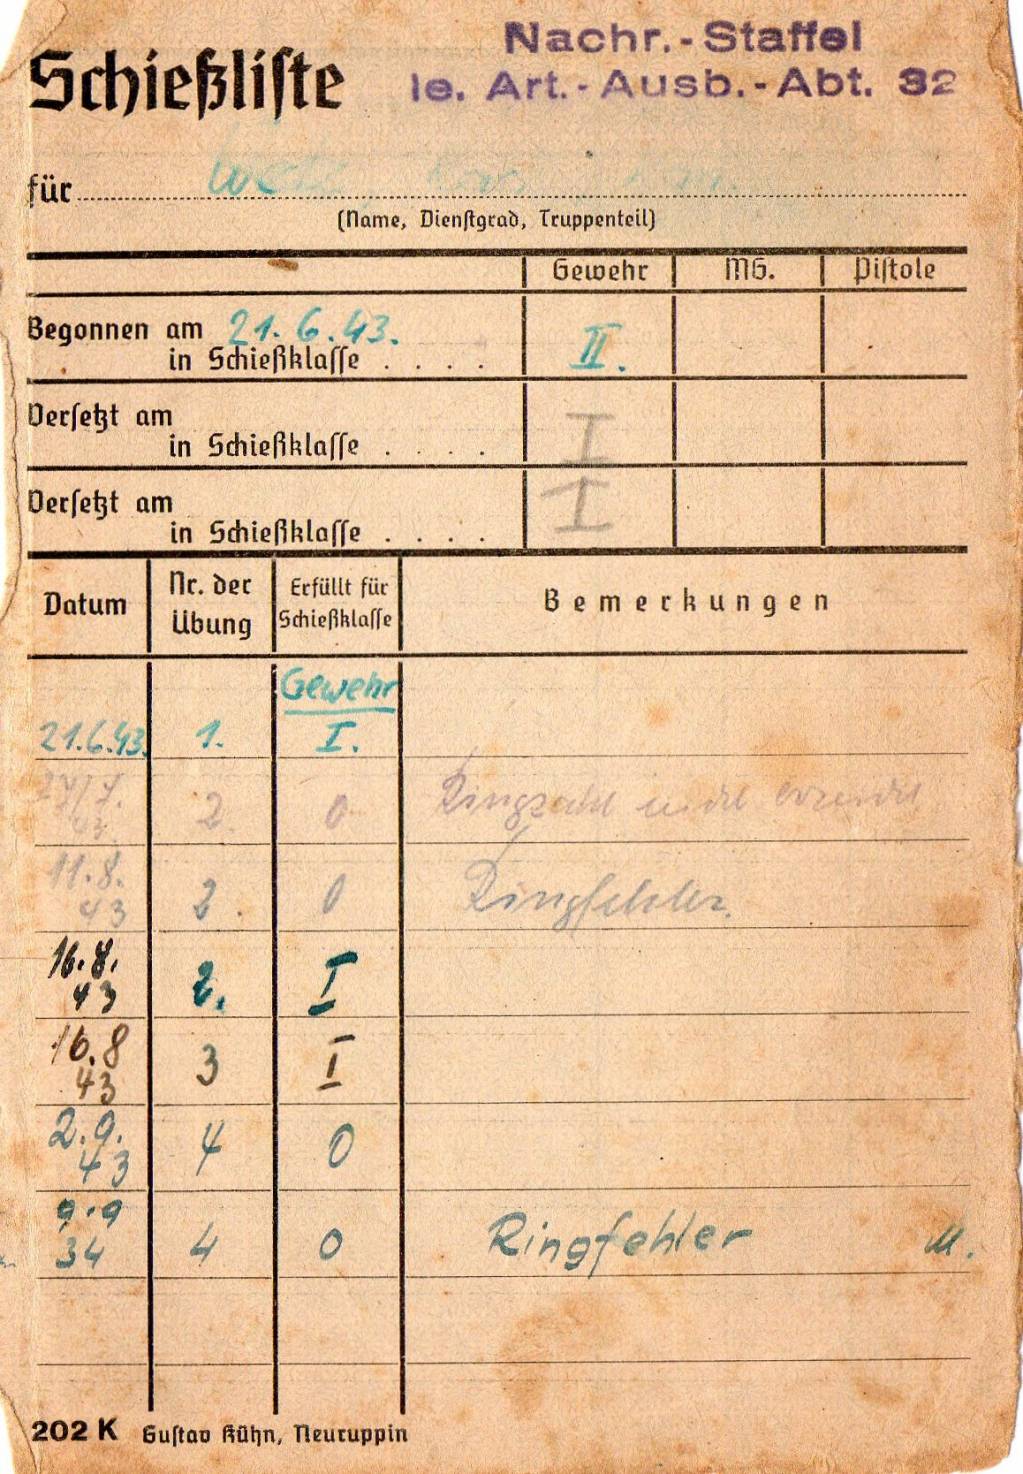 Nachr.-Staffel
Schießliste
le. Art.-Ausb.-Abt. 32
für
(Name, Dienstgrad, Truppenteil)
Gewehr MG. Pistole
Begonnen am 21. 6. 43.
in Schießklasse . . . . II.
Versetzt am
in Schießklasse . . . . I
Versetzt am
in Schießklasse . . . . I
Datum Nr. der Übung Erfüllt für Schießklasse Bemerkungen
Gewehr
21.6.43. 1. I.
43. 2. 0 Ringzahl
11.8. 43 2. 0 Ringfehler.
16.8. 43 2. I
16.8 43 3 I
2.9. 43 4 0
9.9 34 4 0 Ringfehler M.
202 K Gustav Kühn, Neuruppin